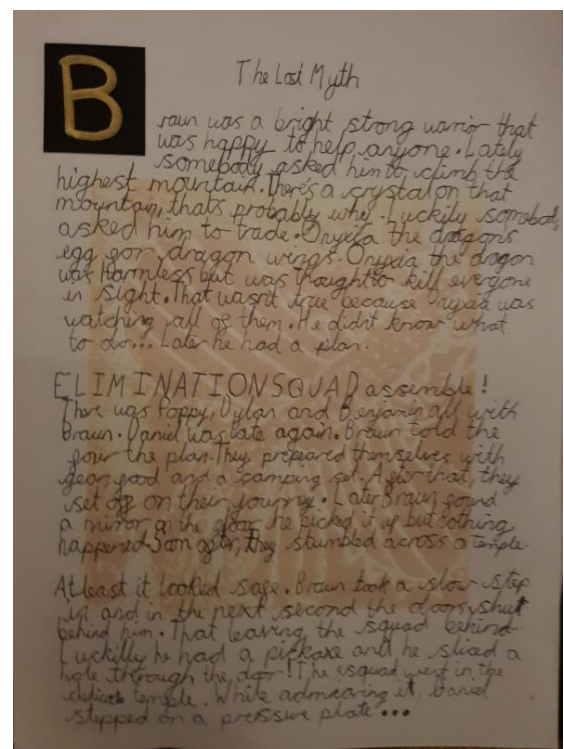 The Lost Myth
B
raun was a bright strong warrior that
was happy to help anyone. Lately
somebody asked him to climb the
highest mountain. There's a crystal on that
mountain, thats probably why. Luckily somebody
asked him to trade. Onyxia the dragons
egg for dragon wings. Onyxia the dragon
was harmless but was thought to kill everyone
in sight. That wasn't true because Onyxia was
watching all of them. He didn't know what
to do... Later he had a plan.
ELIMINATION SQUAD assemble!
There was Poppy, Dylan and Benjamin all with
Braun. Daniel was late again. Braun told the
four the plan. They prepeared themselves with
gear, food and a camping set. After that, they
set off on their journey. Later Braun found
a mirror on the floor he picked it up but nothing
happened. Soon after, they stumbled across a temple.
At least it looked safe. Braun took a slow step
in and in the next second the doors shut
behind him. That leaving the squad behind...
Luckilly he had a pickaxe and he sliced a
hole through the door! The squad went in the
delicate temple. While admearing it, Daniel
stepped on a pressure plate...